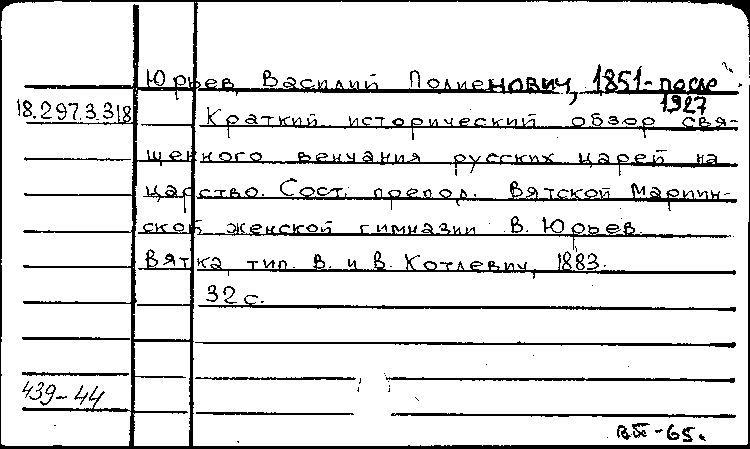 Юрьев, Василий Полиенович, 1851-после
1927
18.297.3.318
Краткий исторический обзор свя-
щенного венчания русских царей на
царство. Сост. препод. Вятской Мариин-
ской женской гимназии В. Юрьев.
Вятка, тип. В. и В. Котлевич, 1883.
32 с.
439-44
вт-65.